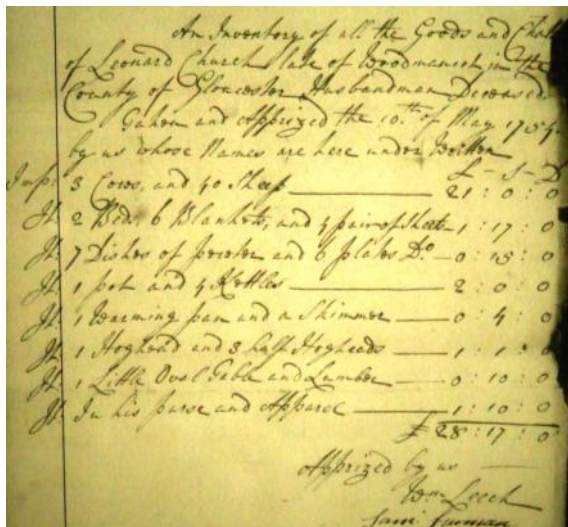 An Inventory of all the Goods and Chatt
of Leonard Church late of Woodmancot in the
County of Gloucester Husbandman Deceased
Taken and Apprized the 10.th of May 1754
by us whose Names are here under Written
£ - S - D
Imp: 3 Cows, and 40 Sheep — 21 : 0 : 0
It: 2 Beds, 6 Blankets, and 4 pair of Sheets - 1 : 17 : 0
It: 7 Dishes of pewter and 6 plates Do. - 0 : 15 : 0
It: 1 pot and 4 Kettles — 2 : 0 : 0
It: 1 Warming pan and a Skimmer — 0 : 4 : 0
It: 1 Hoghead and 3 half Hogheeds — 1 : 1 : 0
It: 1 Little Oval Table and Lumber — 0 : 10 : 0
It: In his purse and Apparel — 1 : 10 : 0
£ 28 : 17 : 0
Apprized by us —
Wm Leech
Sam: